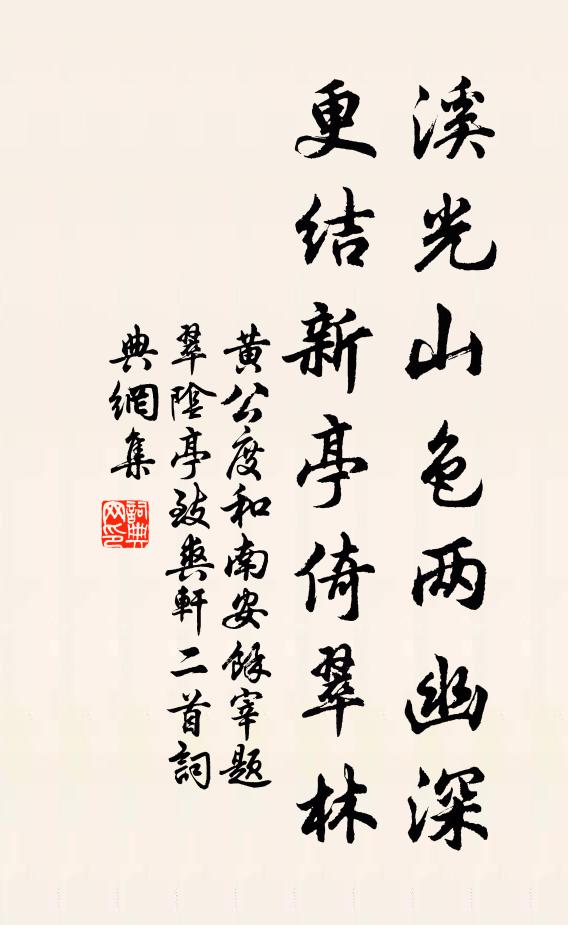 溪光山色两幽深
更结新亭倚翠林
黄公度和南安馀宰题
翠阴亭致爽轩二首词
典網集
詞典
网印